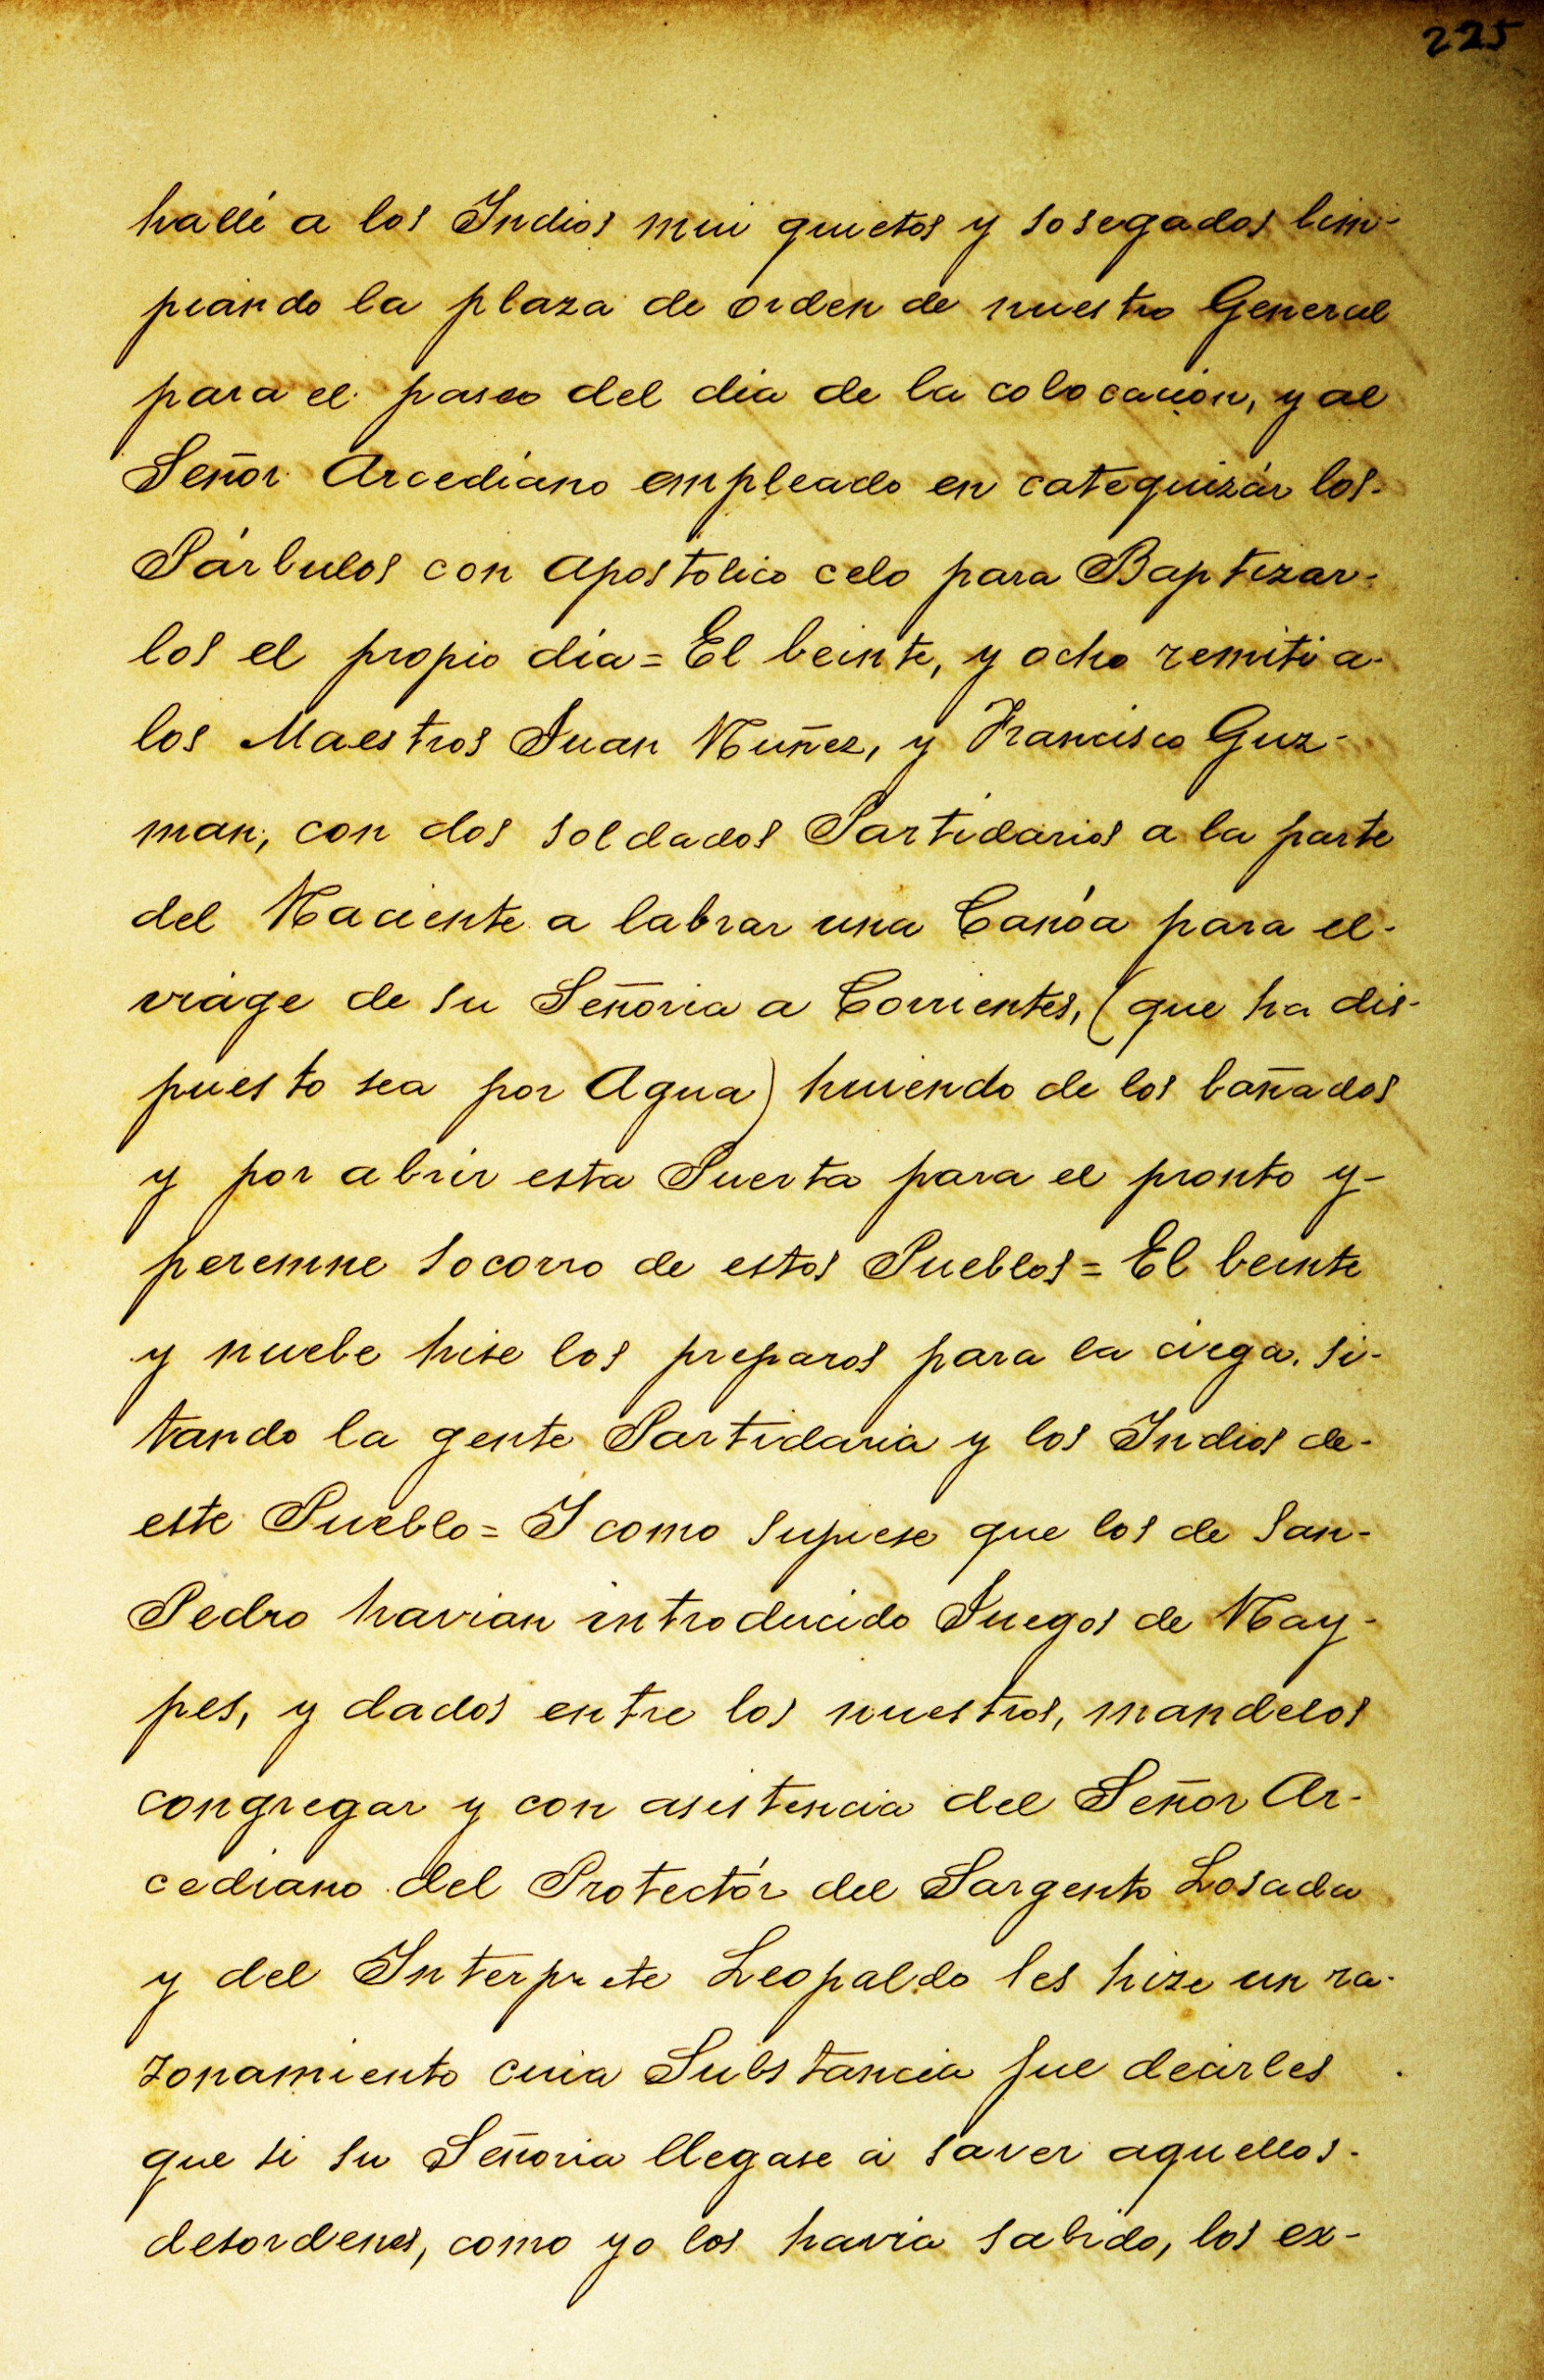 225
hallé a los Indios mui quietos y sosegados lim-
piando la plaza de orden de nuestro General
para el paseo del dia de la colocacion, y al
Señor Arcediano empleado en catequizár los-
Párbulos con Apostolico celo para Baptizar-
los el propio dia = El beinte, y ocho remiti a-
los Maestros Juan Nuñez, y Francisco Guz-
man, con dos soldados Partidarios a la parte
del Naciente a labrar una Canóa para el-
viage de su Señoria a Corrientes, (que ha dis-
puesto sea por Agua) huiendo de los bañados
y por abrir esta Puerta para el pronto y-
peremne socorro de estos Pueblos = El beinte
y nuebe hise los preparos para la ciega, si-
tando la gente Partidaria y los Indios de-
este Pueblo = I como supiese que los de San-
Pedro havian introducido Juegos de Nay-
pes, y dados entre los nuestros, mandelos
congregar y con asistencia del Señor Ar-
cediano del Protectór del Sargento Losada
y del Interprete Leopaldo les hize un ra-
zonamiento cuia Substancia fue decirles
que si su Señoria llegase a saver aquellos-
desordenes, como yo los havia sabido, los ex-